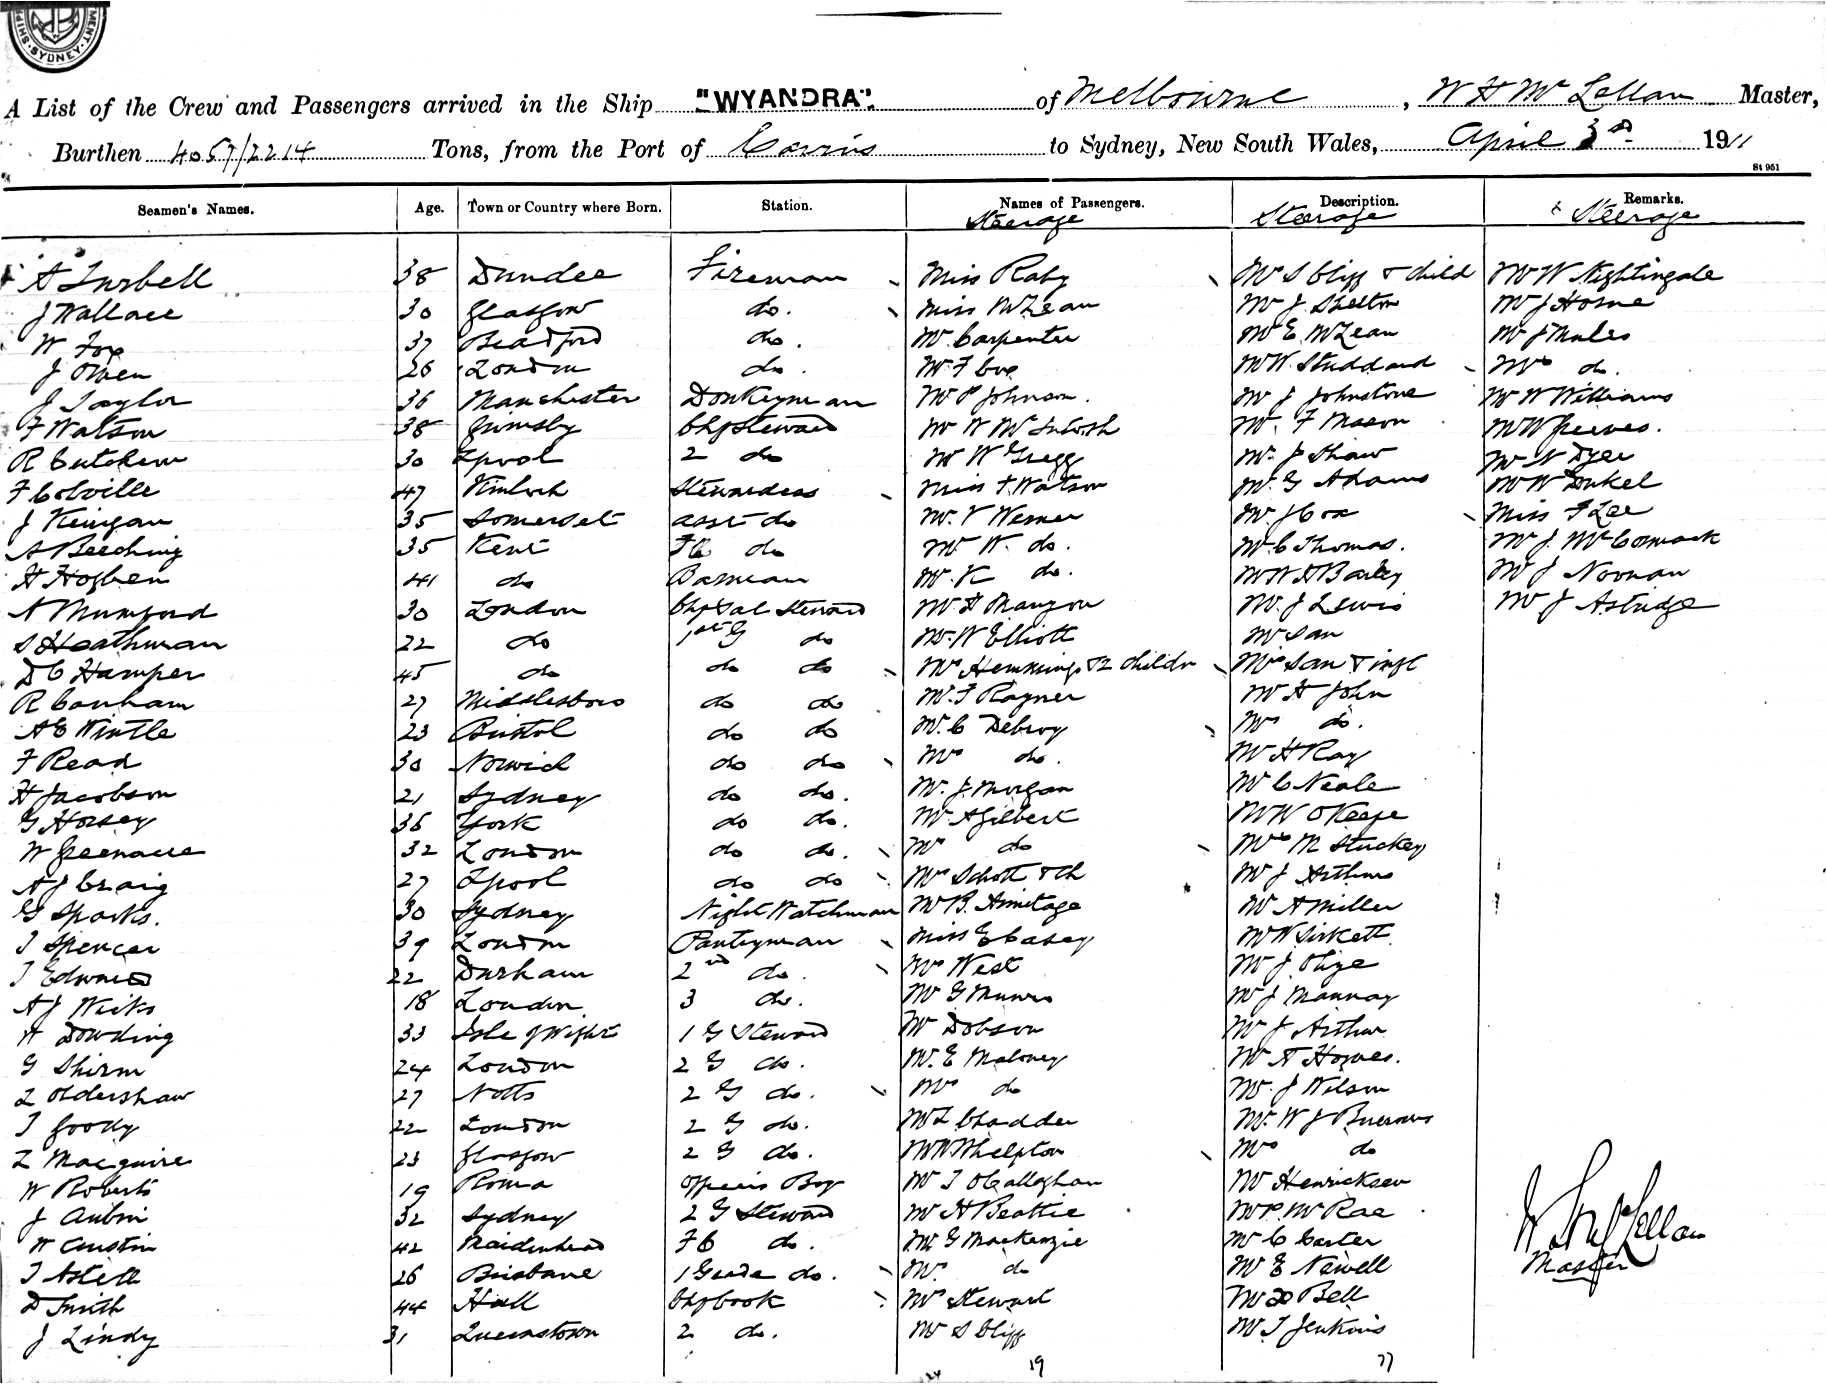 SHIP MENT. SYDNEY.
A List of the Crew and Passengers arrived in the Ship "WYANDRA" of Melbourne, W H McLellan Master,
Burthen 4057/2214 Tons, from the Port of Cairns to Sydney, New South Wales, April 3rd 1911
St 951
Seamen's Names. Age. Town or Country where Born. Station. Names of Passengers. Description. Remarks.
Steerage Steerage Steerage
A Turbell 38 Dundee Fireman Miss Raby Mrs S Cliff & child Mr W Nightingale
J Wallace 30 Glasgow do. Miss McLean Mr J Shelton Mr J Horne
W Fox 37 Bradford do. Mr Carpenter Mr E McLean Mr J Mules
J Owen 26 London do. Mr F Coe Mr W Studdard Mrs do.
J Taylor 36 Manchester Donkeyman Mr P Johnson. Mr J Johnstone Mr W Williams
F Watson 38 Grimsby Chf Steward Mr W McIntosh Mr F Mason Mr W Greeves.
R Cutchem 30 Lpool 2 do Mr W Gregg Mr J Shaw Mr N Dyer
F Colville 47 Kinloch Stewardess Miss F Watson Mr G Adams Mr W Dukel
J Keirgan 35 Somerset asst do Mr. V Werner Mr J Cox Miss F Lee
A Beeching 35 Kent F C do Mr W. do. Mr C Thomas. Mr J. McCormack
H Hogben 41 do Barman Mr. K do. Mr W H Barley Mr J Noonan
A Mumford 30 London Chf Sal Steward Mr H Manzon Mr. J Lewis Mr J Astridge
S Heathman 22 do 1st G do Mr. W Elliott Mr San
D C Hamper 45 do do do Mrs Hemmings & 2 childn Mrs San & inft
R Canham 27 Middlesboro do do Mr. F Rayner Mr H John
A E Wintle 23 Bristol do do Mr. C Debroy Mrs do.
F Read 30 Norwich do do Mrs do. Mr H Ray
H Jacobson 21 Sydney do do. Mr. J. Morgan Mr C Neale
G Horsey 36 York do do. Mr A Gilbert Mr W O'Keefe
W Greenacre 32 London do do. Mrs do Mrs M Stuckey
A J Craig 27 Lpool do do Mrs Schott & Ch Mr J Arthurs
G Sparks. 30 Sydney Night Watchman Mr B. Armitage Mr A Miller
T Spencer 39 London Pantryman Miss E Casey Mr W Sirkett
T Edwards 22 Durham 2nd do. Mrs West Mr J. Olize
A J Wicks 18 London 3 do. Mr G Munro Mr J Mannay
A Dowding 33 Isle of Wight 1 G Steward Mr Dobson Mr J Arthur
G Shirm 24 London 2 G do. Mr. E Maloney Mr A Howes.
L Oldershaw 27 Notts 2 G do. Mrs do Mr. J Wilson
T Goody 22 London 2 G do. Mr L Chadder Mr. W J Burrows
L Macguire 23 Glasgow 2 G do. Mr W Whelpton Mrs do
W Roberts 19 Roma Officers Boy Mr T O'Callaghan Mr Henricksen
J Aubin 32 Sydney 2 G Steward Mr H Beattie Mr P. McRae
W Austin 42 Maidenhead F C do. Mr G Mackenzie Mr C Carter
T Astell 26 Brisbane 1 Grade do. Mrs do Mr E Newell
D Smith 44 Hull Chf Cook Mrs Stewart Mr D Bell
J Lindy 31 Queenstown 2 do. Mr S Cliff Mr. T Jenkins
24 19 77
W H McLellan
Master